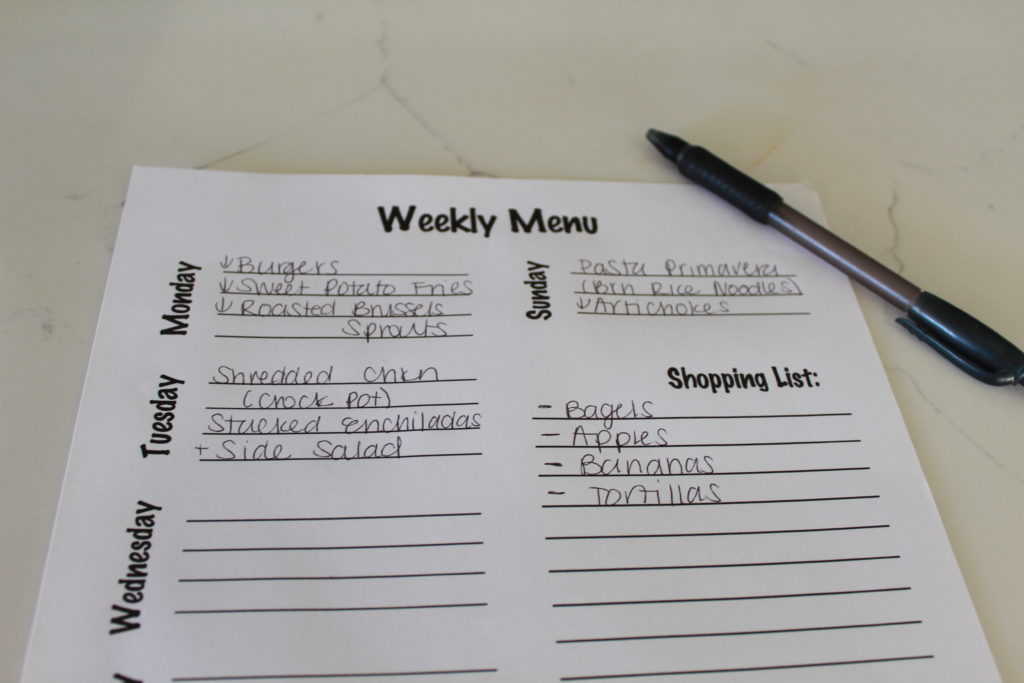 Weekly Menu
Monday
↓ Burgers
↓ Sweet Potato Fries
↓ Roasted Brussels
Sprouts
Tuesday
Shredded Chkn
(Crock Pot)
Stacked Enchiladas
+ Side Salad
Wednesday
Sunday
Pasta Primavera
(Brn Rice Noodles)
↓ Artichokes
Shopping List:
- Bagels
- Apples
- Bananas
- Tortillas